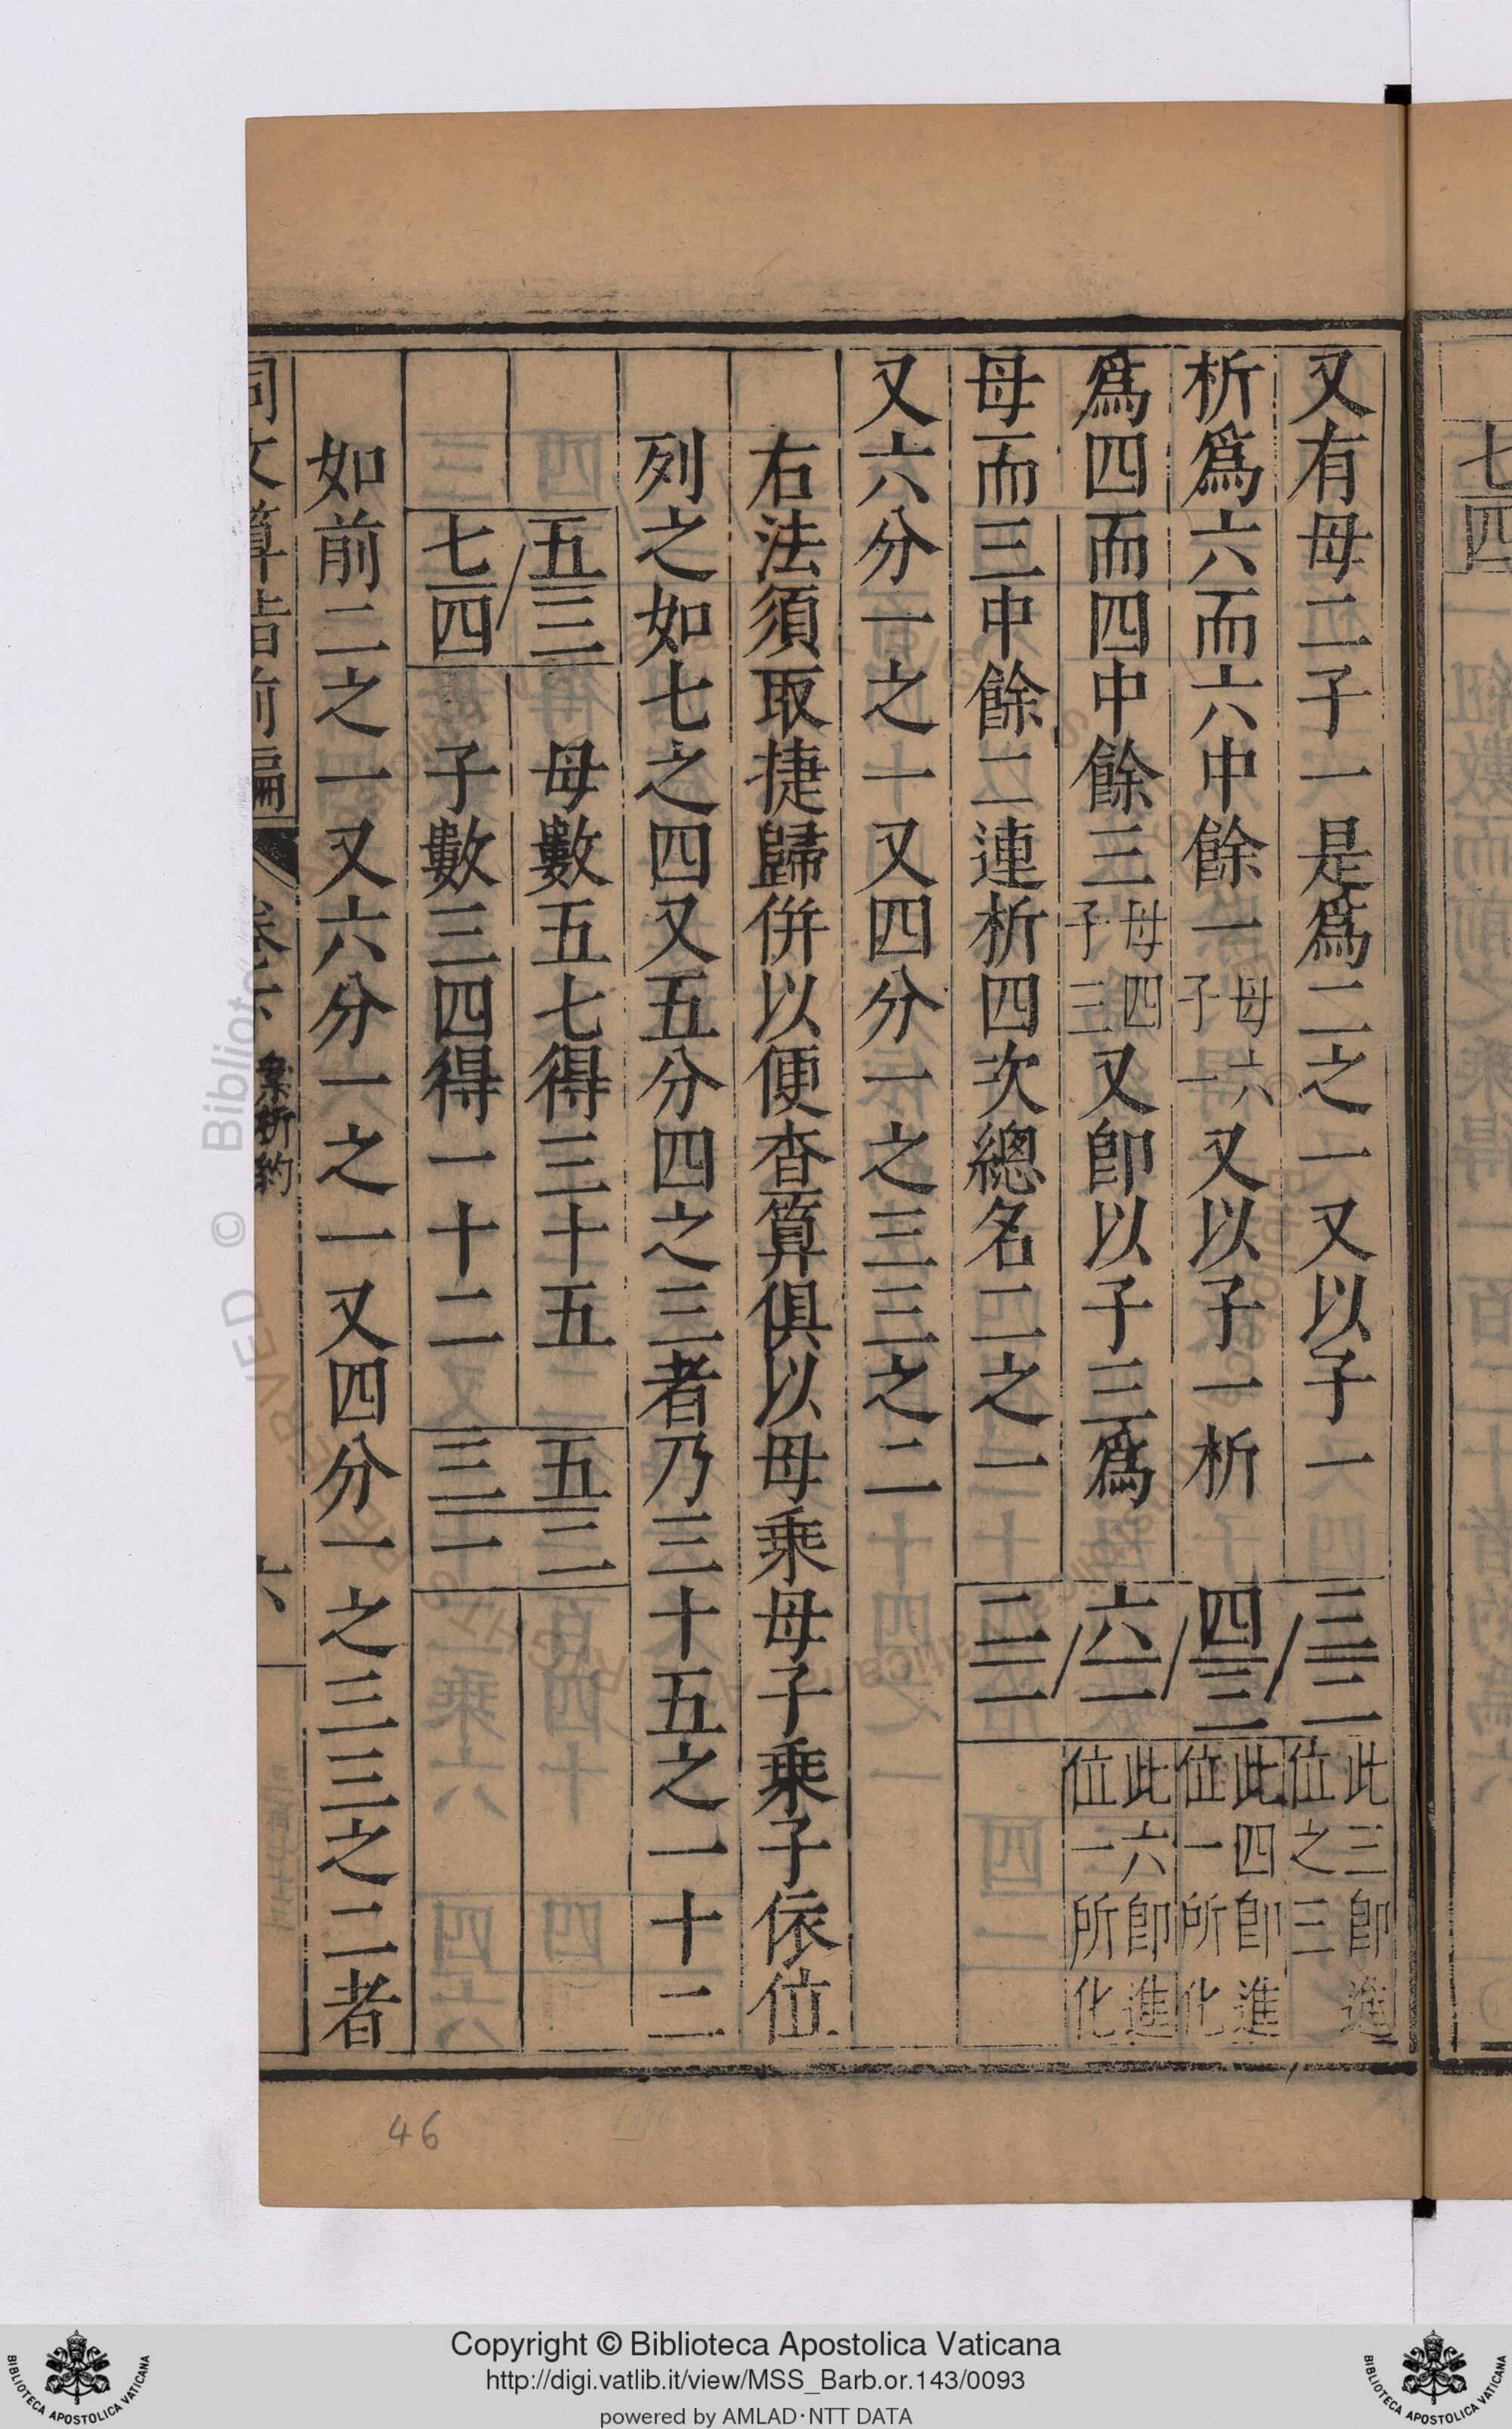 又有母二子一是爲二之一又以子一 三二 此三卽進位之三
析爲六而六中餘一母六子一又以子一析 四三 此四卽進位一所化
爲四而四中餘三母四子三又卽以子三爲 六一 此六卽進位一所化
母而三中餘二連析四次總名二之一 二一
又六分一之一又四分一之三三之二
右法須取捷歸併以便查算俱以母乘母子乘子依位
列之如七之四又五分四之三者乃三十五之一十二
五三 母數五七得三十五 五二
七四 子數三四得一十二 三一
如前二之一又六分一之一又四分一之三三之二者
同文算指前編 卷下 絫析約 六
七四
46
Copyright © Biblioteca Apostolica Vaticana
http://digi.vatlib.it/view/MSS_Barb.or.143/0093
powered by AMLAD·NTT DATA
BIBLIOTECA APOSTOLICA VATICANA
BIBLIOTECA APOSTOLICA VATICANA